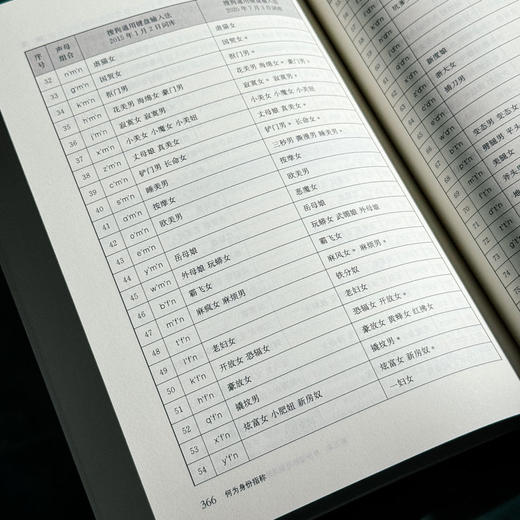 序号 声母组合 搜狗通用键盘输入法 2015年1月2日词库 搜狗通用键盘输入法
32 n'm'n
33 g'm'n 国贸女 国贸女*
34 k'm'n 抠门男 抠门男*
35 h'm'n 花美男 海绵女 豪门男 花美男 海绵女* 豪门男*
36 j'm'n 寂寞女 寂寞男 寂寞女 寂寞男*
37 x'm'n 小美女 小魔女 小美妞 小美女 小魔女 小美妞
38 z'm'n 丈母娘 真美女 丈母娘 真美女*
39 c'm'n 铲门男 长命女 铲门男* 长命女*
40 s'm'n 睡美男 三秒男 撕漫男 睡美男*
41 a'm'n 按摩女 按摩女
42 o'm'n 欧美男 欧美男
43 e'm'n 恶魔女
44 y'm'n 岳母娘 岳母娘
45 w'm'n 外母娘 玩蟒女 玩蟒女 武媚娘 外母娘
46 b'f'n 霸飞女 霸飞女
47 m'f'n 麻疯女 麻烦男 麻风女* 麻烦男*
48 t'f'n 铁分奴
49 l'f'n 老妇女 老妇女
50 k'f'n 开放女 恐辐女 恐辐女 开放女*
51 h'f'n 豪放女 豪放女 黄蜂女 红拂女
52 q'f'n
53 x'f'n 炫富女 小肥妞 新房奴 炫富女 新房奴*
54 y'f'n 一妇女
366 何为身份指称
新度娘
浙大女
插刀男
变态男 变态女
瘸腿男
美腿女